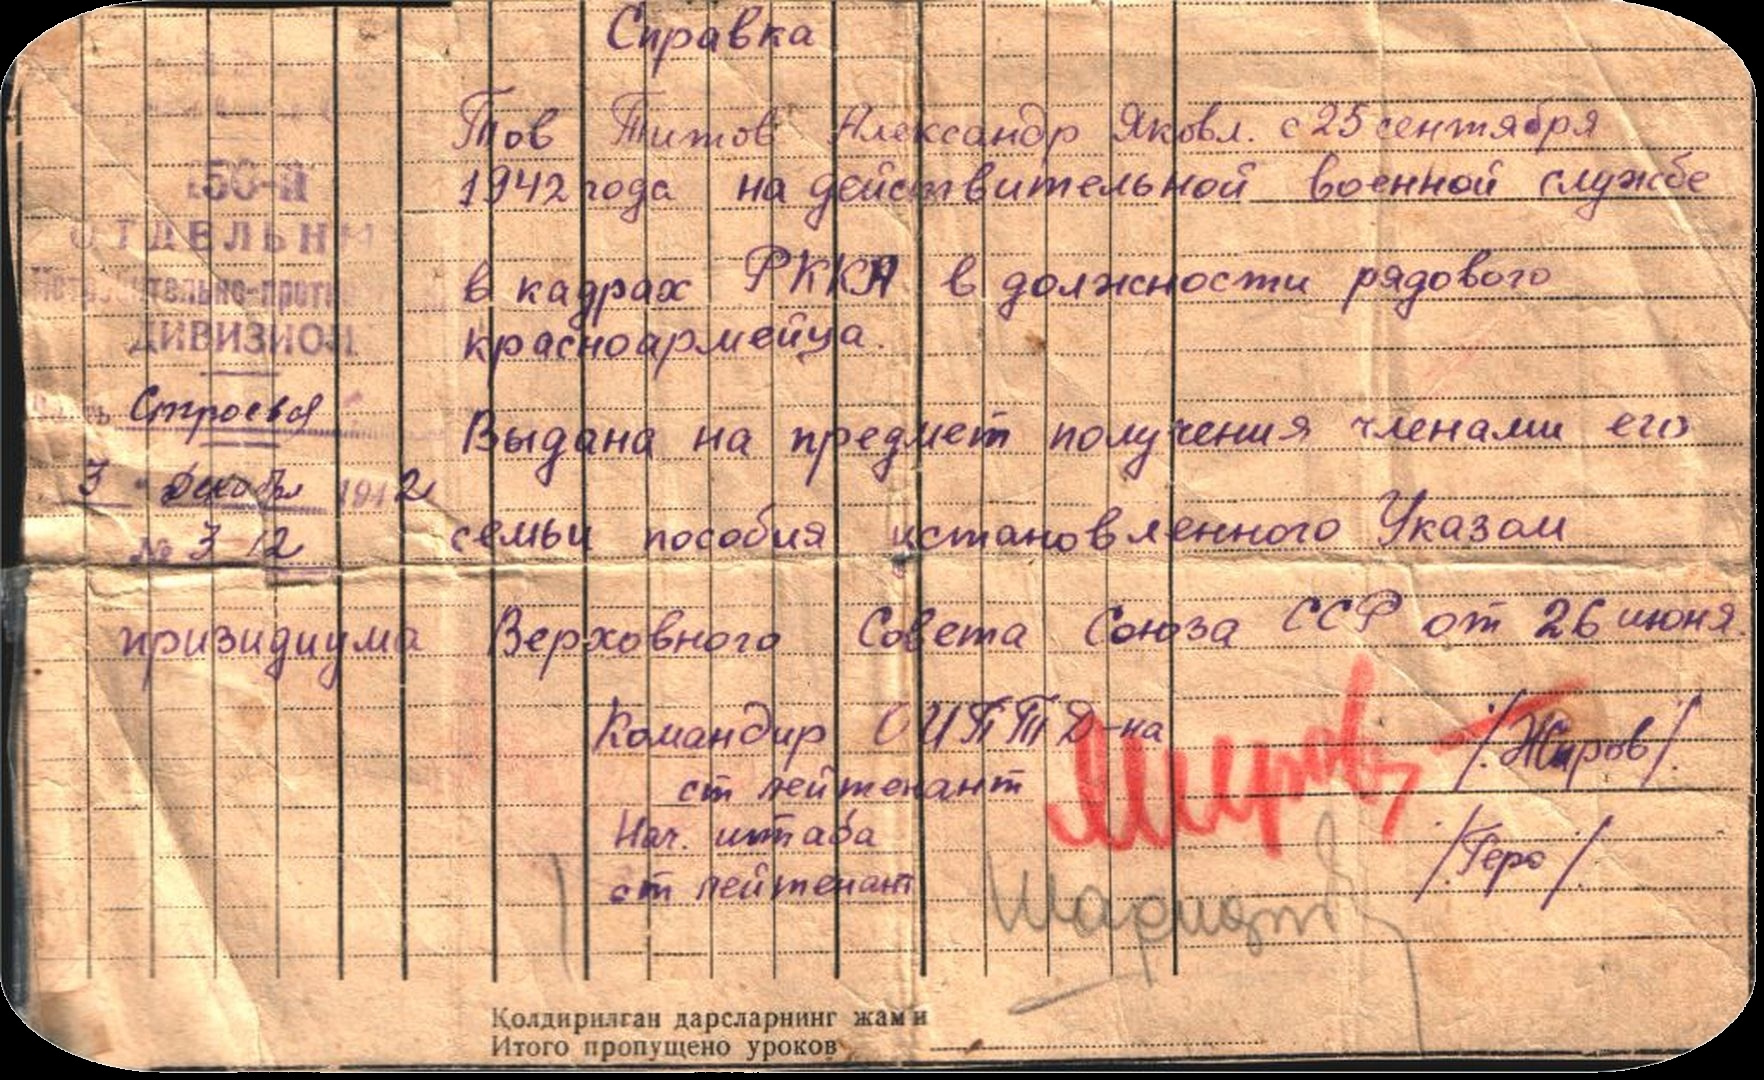 Справка
Тов Титов Александр Яковл. с 25 сентября
1942 года на действительной военной службе
в кадрах РККА в должности рядового
красноармейца.
Выдана на предмет получения членами его
семьи пособия установленного Указом
призидиума Верховного Совета Союза ССР от 26 июня
Командир ОИПТД-на
ст лейтенант
/Жиров/.
Нач. штаба
ст лейтенант
/Геро/.
50-й
ОТДЕЛЬН
ДИВИЗИОН
Строевая
3 " декабря 1942
№ 3-12
Қолдирилган дарсларнинг жами
Итого пропущено уроков